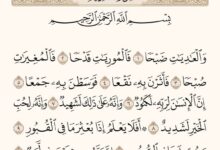 بِسْمِ ٱللَّهِ ٱلرَّحْمَٰنِ ٱلرَّحِيمِ
وَٱلْعَٰدِيَٰتِ ضَبْحًا ١ فَٱلْمُورِيَٰتِ قَدْحًا ٢ فَٱلْمُغِيرَٰتِ
صُبْحًا ٣ فَأَثَرْنَ بِهِۦ نَقْعًا ٤ فَوَسَطْنَ بِهِۦ جَمْعًا ٥
إِنَّ ٱلْإِنسَٰنَ لِرَبِّهِۦ لَكَنُودٌ ٦ وَإِنَّهُۥ عَلَىٰ ذَٰلِكَ لَشَهِيدٌ ٧ وَإِنَّهُۥ لِحُبِّ
ٱلْخَيْرِ لَشَدِيدٌ ٨ أَفَلَا يَعْلَمُ إِذَا بُعْثِرَ مَا فِى ٱلْقُبُورِ ٩